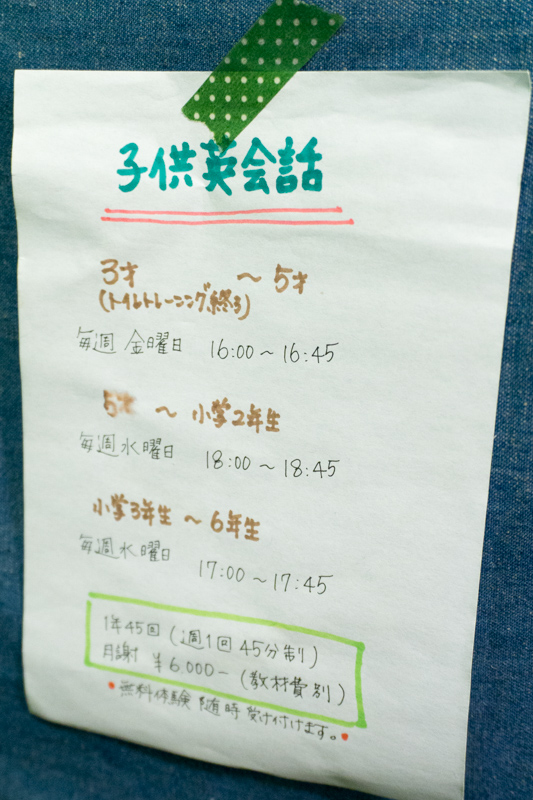 子供英会話
3才 〜 5才
(トイレトレーニング終了)
毎週 金曜日 16:00〜16:45
5才 〜 小学2年生
毎週水曜日 18:00〜18:45
小学3年生 〜 6年生
毎週水曜日 17:00〜17:45
1年45回 (週1回 45分制)
月謝 ¥6,000- (教材費別)
•無料体験 随時 受け付けます。•